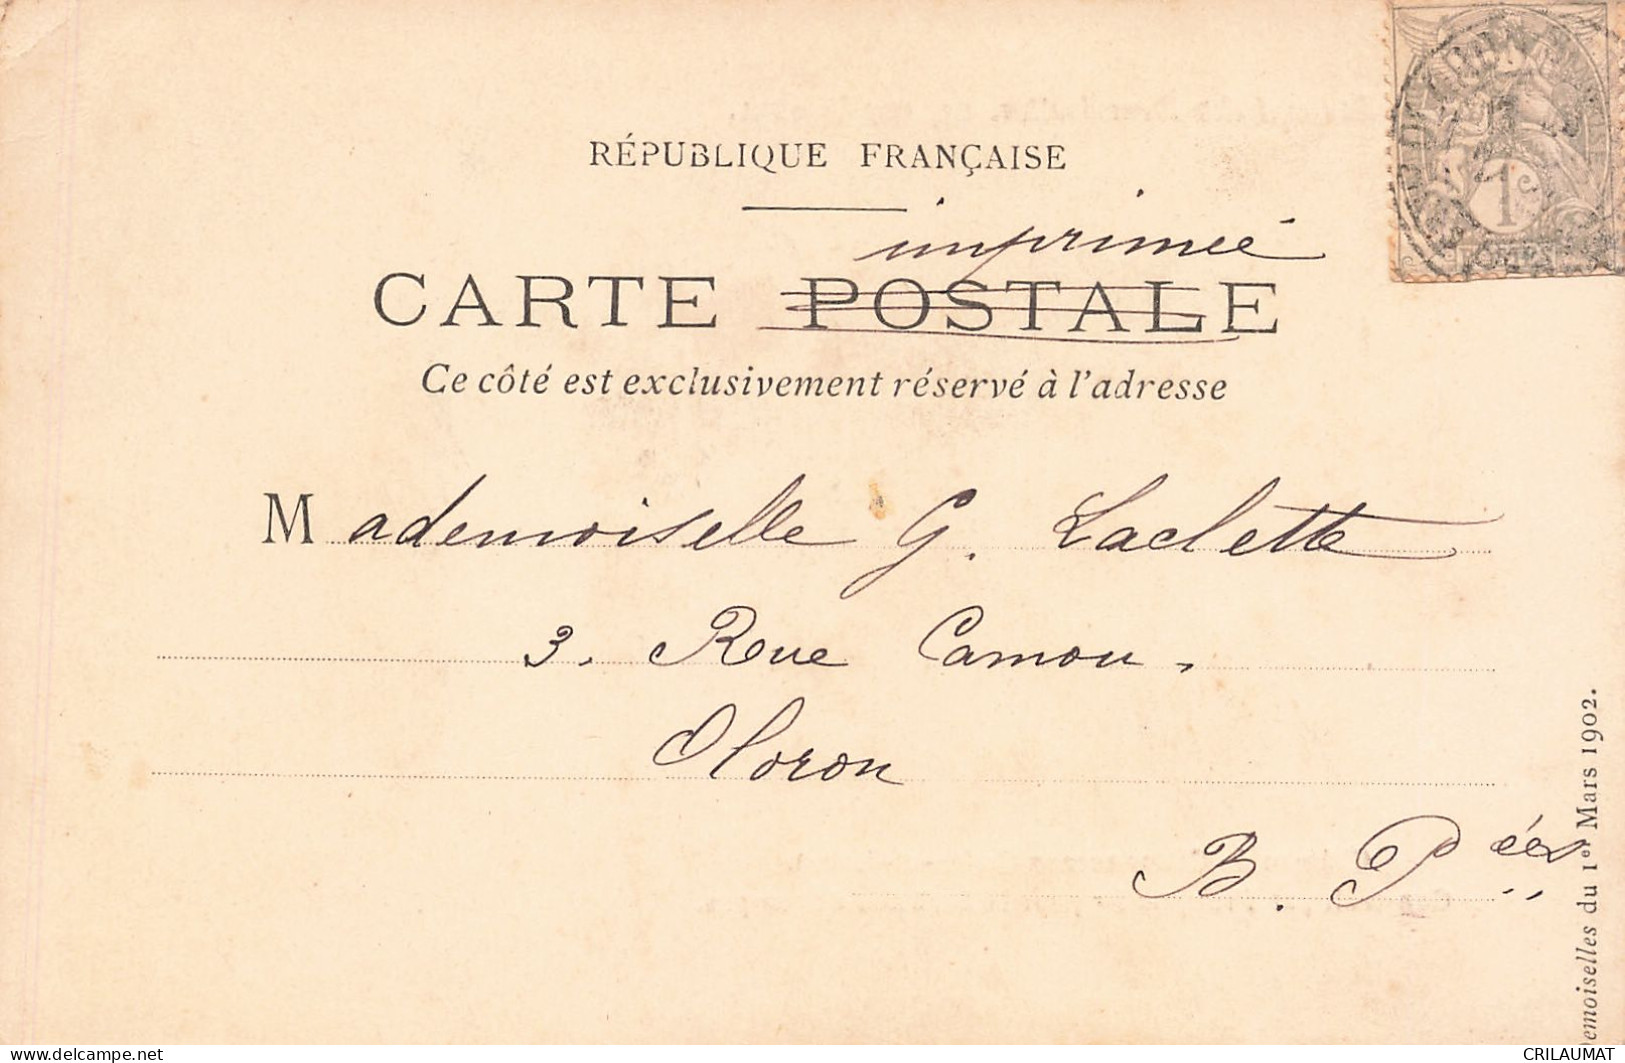 RÉPUBLIQUE FRANÇAISE
imprimée
CARTE POSTALE
Ce côté est exclusivement réservé à l'adresse
Mademoiselle G. Laclette
3. Rue Camou.
Oloron
B. Pées
1c
Demoiselles du 1er Mars 1902.
www.delcampe.net
CRILAUMAT